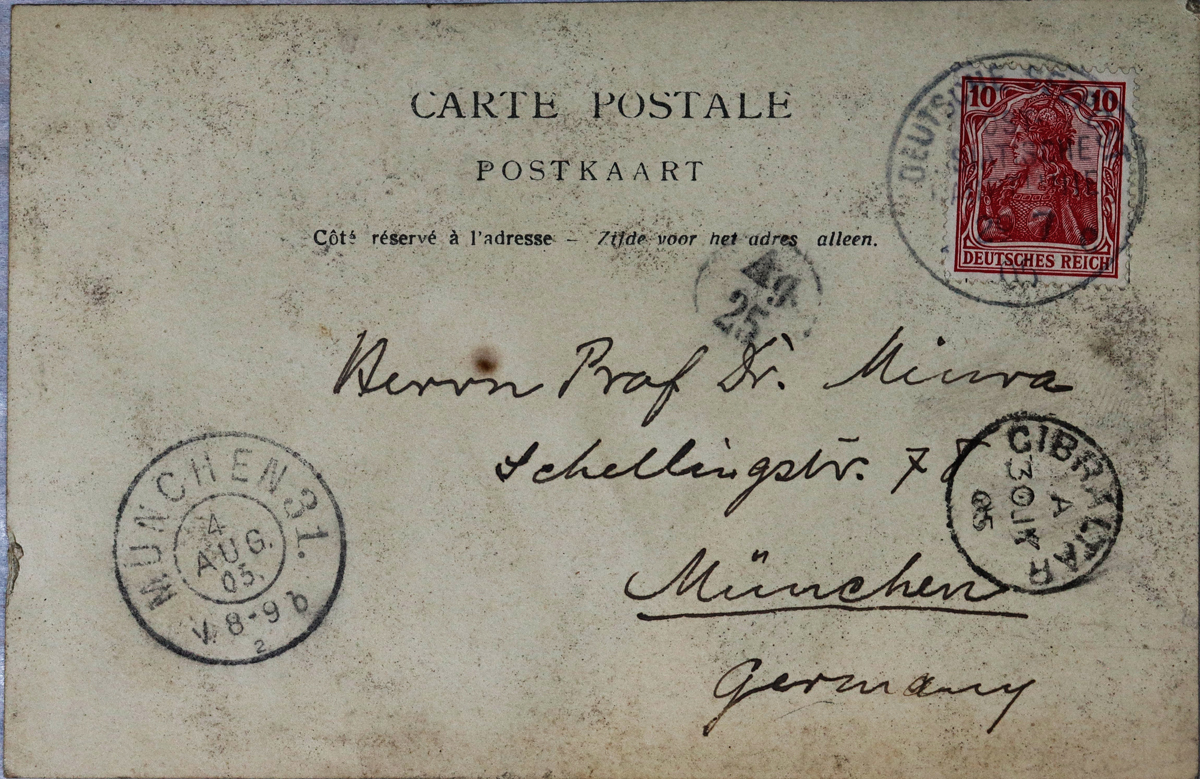 CARTE POSTALE
POSTKAART
Côté réservé à l'adresse – Zijde voor het adres alleen.
10 10
DEUTSCHES REICH
DEUTSCHE SEEPOST
29 7
05
25
Herrn Prof Dr. Miura
Schellingstr. 78
München
Germany
MÜNCHEN 31.
4
AUG.
05.
V. 8-9 b
2
GIBRALTAR
A
30 JY
05